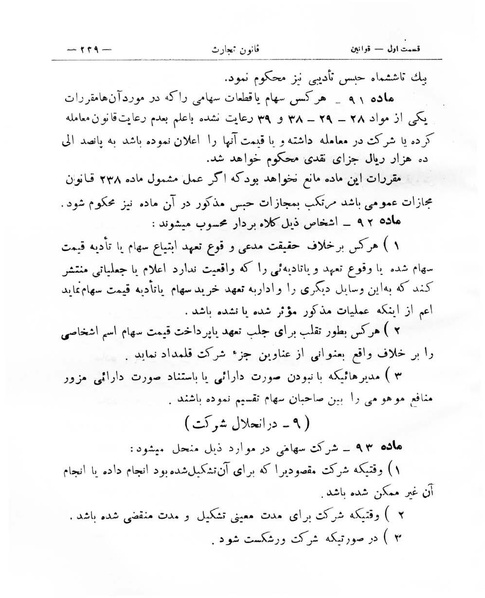 قسمت اول — قوانین
قانون تجارت
— ۲۲۹ —
بیك تاششماه حبس تأدیبی نیز محكوم نمود.
ماده ۹۱ – هركس سهام یا قطعات سهامی راكه در مورد آن ها مقررات
یكی از مواد ۲۸ – ۲۹ – ۳۸ و ۳۹ رعایت نشده باعلم بعدم رعایت قانون معامله
كرده یا شركت در معامله داشته و با قیمت آنها را اعلان نموده باشد به پانصد الی
ده هزار ریال جزای نقدی محكوم خواهد شد.
مقررات این ماده مانع نخواهد بود كه اگر عمل مشمول ماده ۲۳۸ قانون
مجازات عمومی باشد مرتكب بمجازات حبس مذكور در آن ماده نیز محكوم شود.
ماده ۹۲ – اشخاص ذیل كلاه بردار محسوب میشوند :
۱ ) هركس برخلاف حقیقت مدعی و قوع تعهد ابتیاع سهام یا تأدیه قیمت
سهام شده یا وقوع تعهد و یا تادیه‌ئی را كه واقعیت ندارد اعلام یا جعلیاتی منتشر
كند كه به این وسایل دیگری را وادار به تعهد خرید سهام یا تأدیه قیمت سهام نماید
اعم از اینكه عملیات مذكور مؤثر شده یا نشده باشد.
۲ ) هركس بطور تقلب برای جلب تعهد یا پرداخت قیمت سهام اسم اشخاصی
را بر خلاف واقع بعنوانی از عناوین جزء شركت قلمداد نماید .
۳ ) مدیرهائیكه با نبودن صورت دارائی یا باستناد صورت دارائی مزور
منافع موهومی را بین صاحبان سهام تقسیم نموده باشند .
(۹ – در انحلال شركت)
ماده ۹۳ – شركت سهامی در موارد ذیل منحل میشود :
۱ ) وقتیكه شركت مقصودیرا كه برای آن تشكیل شده بود انجام داده یا انجام
آن غیر ممكن شده باشد.
۲ ) وقتیكه شركت برای مدت معینی تشكیل و مدت منقضی شده باشد.
۳ ) در صورتیكه شركت ورشكست شود .